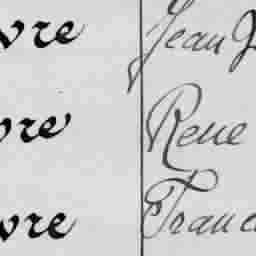 vre Jean J
vre Rene
vre Franc